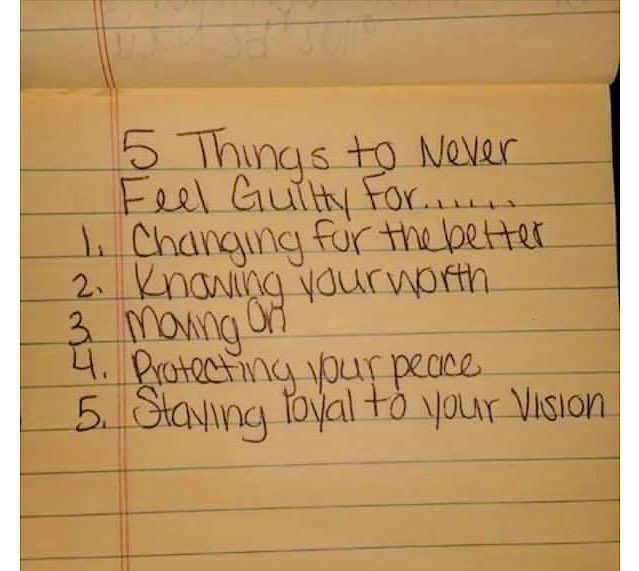 5 Things to Never
Feel Guilty For......
1. Changing for the better
2. Knowing your worth
3. Moving On
4. Protecting your peace
5. Staying loyal to your Vision